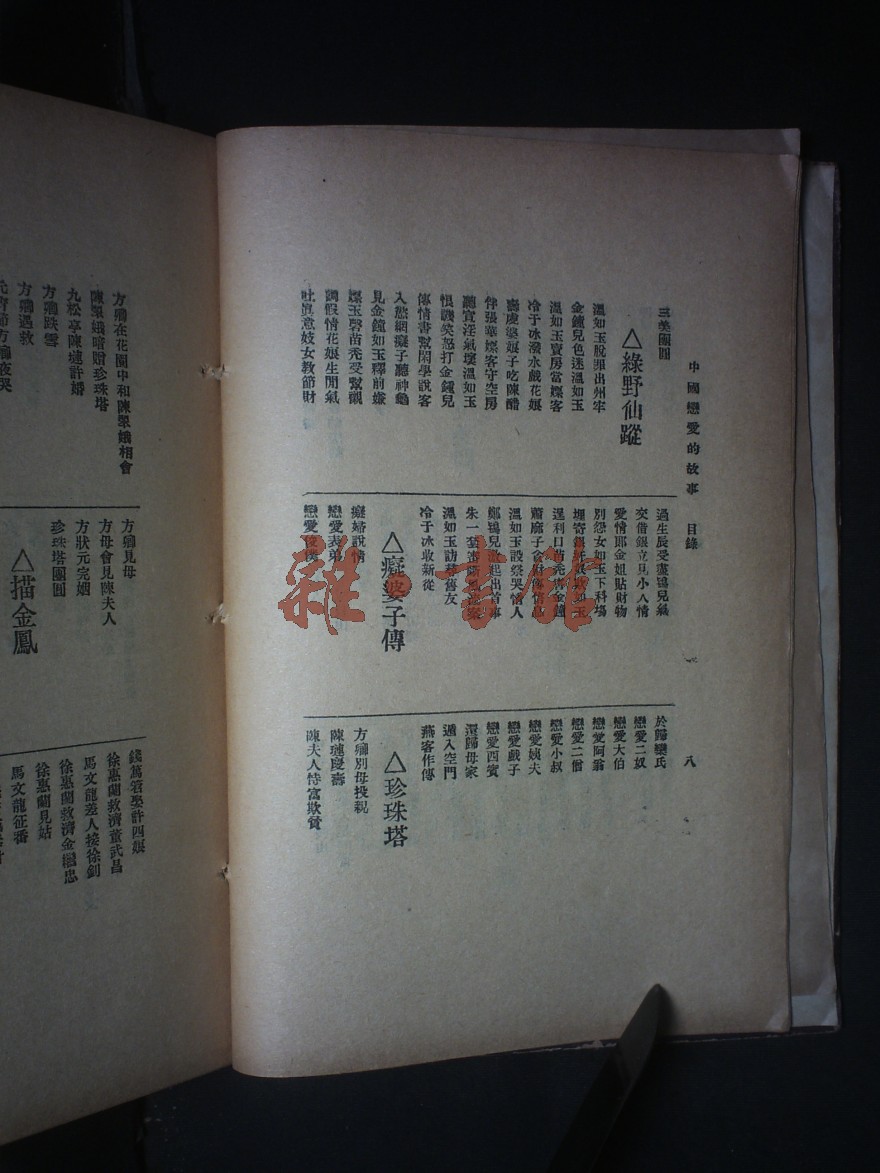 中國戀愛的故事 目錄 八
三美團圓
△綠野仙蹤
溫如玉脫罪出州牢
金鐘兒色迷溫如玉
溫如玉賣房當嫖客
冷于冰潑水戲花娘
壽虔婆娘子吃陳醋
伴張華嫖客守空房
聽宣淫氣壞溫如玉
恨譏笑怒打金鐘兒
傳情書幫閑學說客
入態網癡子聽神龜
見金鐘如玉釋前嫌
嫖玉磬苗禿受幫襯
調假情花娘生閒氣
吐真意妓女教節財
過生辰受盡鴇兒氣
交借銀立見小人情
愛情郎金姐貼財物
別怨女如玉下科場
埋寄銀奸奴欺如玉
逞利口苗禿死金鐘
蕭麻子貪財傳信息
溫如玉設祭哭情人
鄭鴇兒激起出首事
朱一套審斷風流案
溫如玉訪蔡舊友
冷于冰收新從
△癡婆子傳
癡婦說情
戀愛表弟
戀愛俊僕
於歸欒氏
戀愛二奴
戀愛大伯
戀愛阿翁
戀愛二僧
戀愛小叔
戀愛姨夫
戀愛戲子
戀愛西賓
還歸母家
遁入空門
燕客作傳
△珍珠塔
方卿別母投親
陳璉慶壽
陳夫人恃富欺貧
方卿在花園中和陳翠娥相會
陳翠娥暗贈珍珠塔
九松亭陳璉許婚
方卿跌雪
方卿遇救
方卿見母
方母會見陳夫人
方狀元完姻
珍珠塔團圓
△描金鳳
錢篤笤娶許四娘
徐惠蘭救濟董武昌
馬文龍差人接徐釗
徐惠蘭救濟金繼忠
徐惠蘭見姑
馬文龍征番
雜·書館